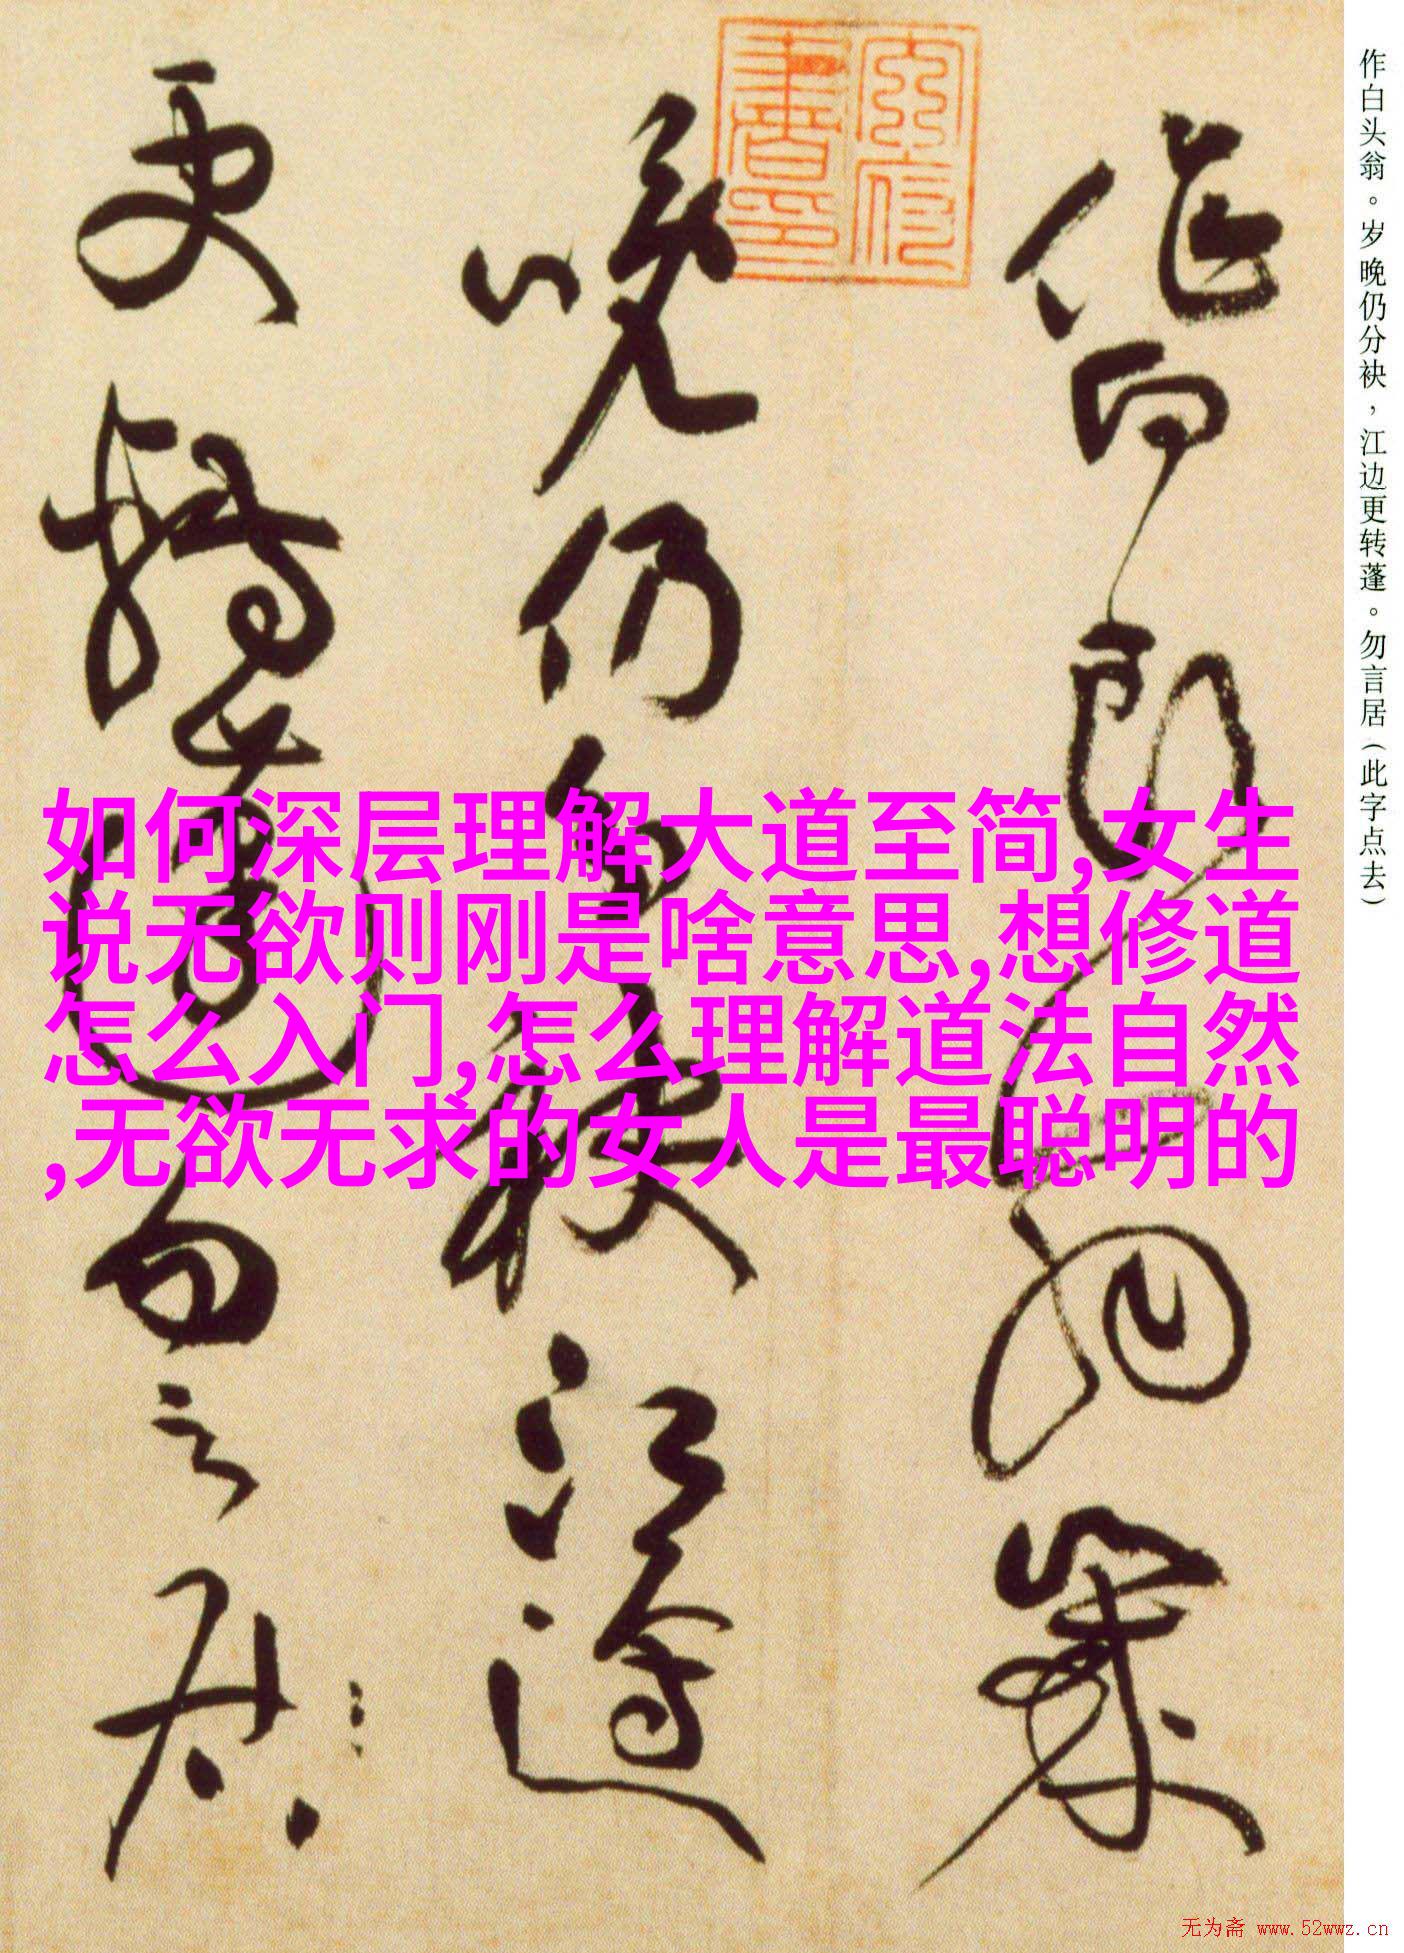 作白头翁。岁晚仍分袂，江边更转蓬。勿言居（此字点去）
如何深层理解大道至简,女生
说无欲则刚是啥意思,想修道
怎么入门,怎么理解道法自然
,无欲无求的女人是最聪明的
晚仍分袂江边
更转蓬勿言居
无为斋 www.52wwz.cn